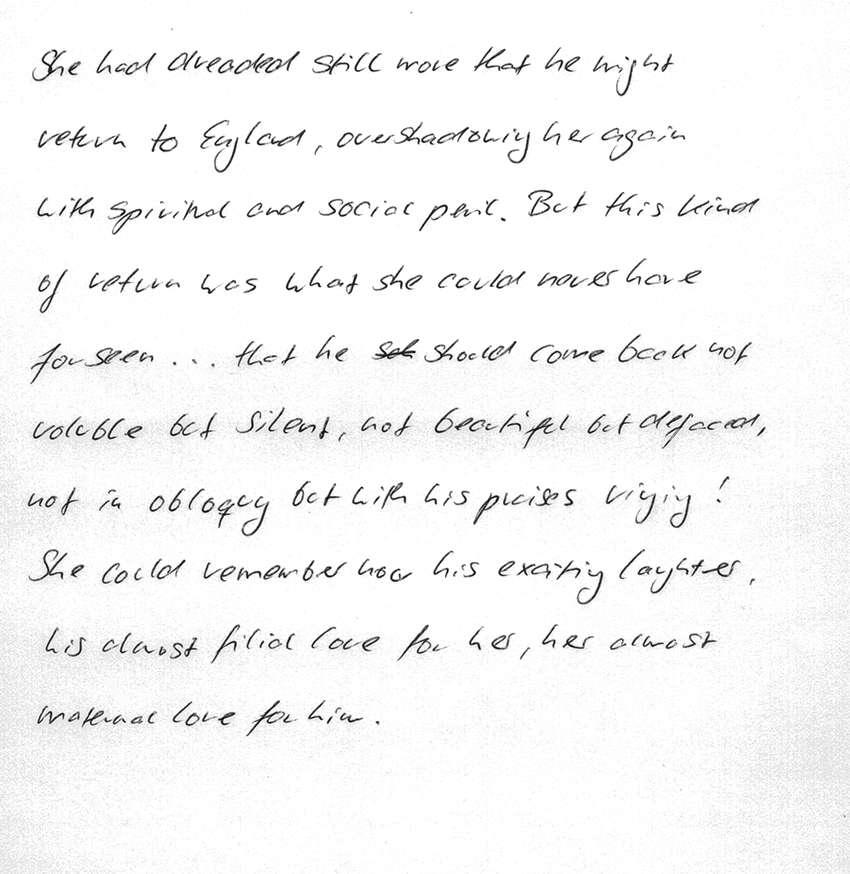 She had dreaded still more that he might
return to England, overshadowing her again
with spiritual and social peril. But this kind
of return was what she could never have
forseen ... that he should come back not
voluble but silent, not beautiful but defaced,
not in obloquy but with his praises ringing!
She could remember now his exciting laughter,
his almost filial love for her, her almost
maternal love for him.